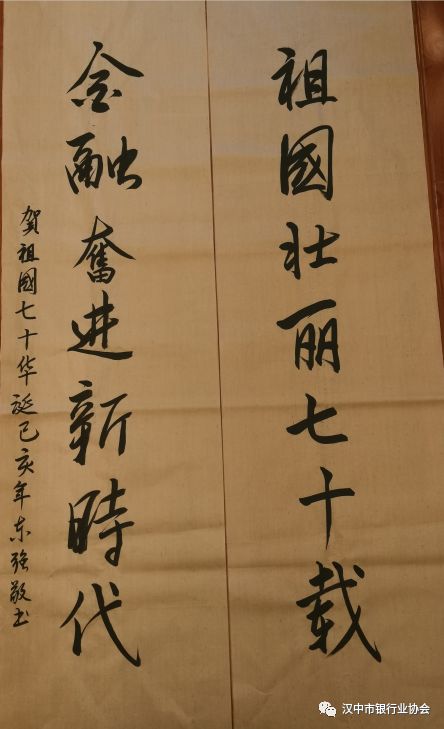 祖國壮丽七十载
金融奮进新時代
贺祖國七十华诞己亥年东强敬书
汉中市银行业协会